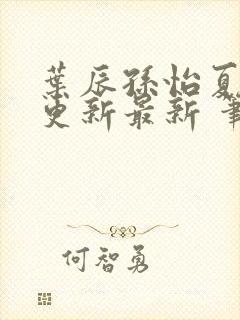 葉辰孫怡夏
更新最新 筆
何智勇